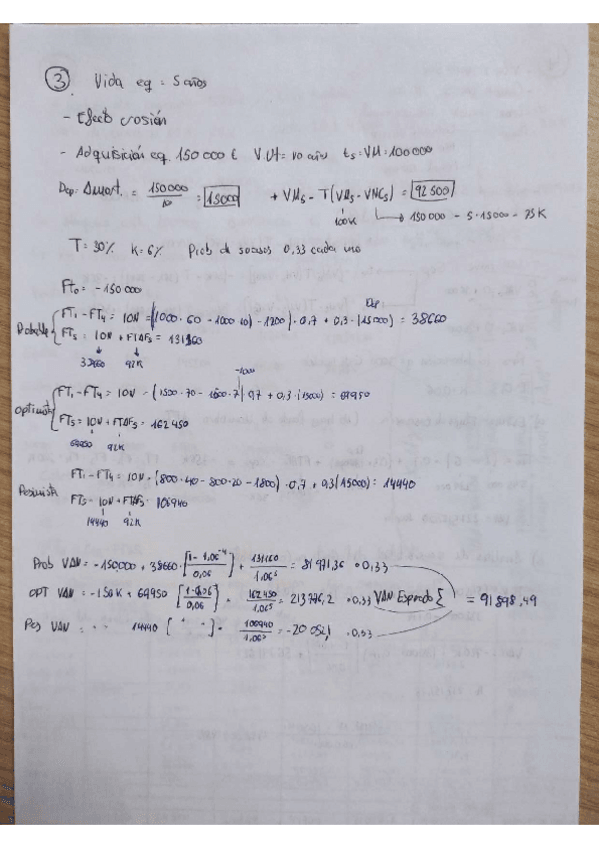 3 Vida eq = 5 años
- Efecto erosión
- Adquisición eq. 150 000 € V.Ut = 10 años t5 = VM = 100 000
Dep: Amort. = 150000/10 = 15000 + VM5 - T(VM5 - VNC5) = 92500
100K → 150 000 - 5·15000 = 75K
T = 30% K = 6% Prob de sucesos 0,33 cada uno
FT0 = -150 000
Probable FT1 - FT4 = ION = (1000·60 - 1000·10) - 1200) · 0,7 + 0,3·(15000) = 38660
Dep
FT5 = ION + FTDF5 = 131160
38660 92K
Optimista FT1 - FT4 = ION - (1500·70 - 1500·7) 0,7 + 0,3·(15000) = 69950
-1000
FT5 = ION + FTDF5 = 162 450
69950 92K
Pesimista FT1 - FT4 = ION = (800·40 - 800·20 - 1800) · 0,7 + 0,3(15000) = 14440
FT5 = ION + FTDF5 = 106940
14440 92K
Prob VAN = -150000 + 38660 · [1 - 1,06^-4 / 0,06] + 131160/1,06^5 = 81 971,36 · 0,33
OPT VAN = -150K + 69950 [1-1,06 / 0,06] + 162 450/1,06^5 = 213 776,2 · 0,33 VAN Esperado { = 91 898,49
Pes VAN = " " 14440 [ " " ] + 106940/1,06^5 = -20 052,1 · 0,33